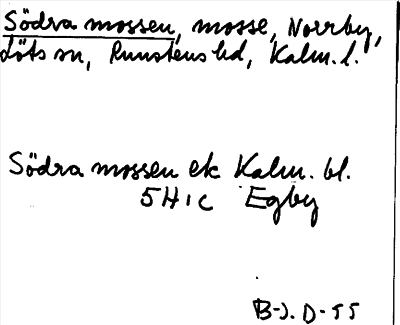 Södra mossen, mosse, Norrby,
Löts sn, Runstens hd, Kalm. l.
Södra mossen ek Kalm. bl.
5H1c Egby
B-J. D-55